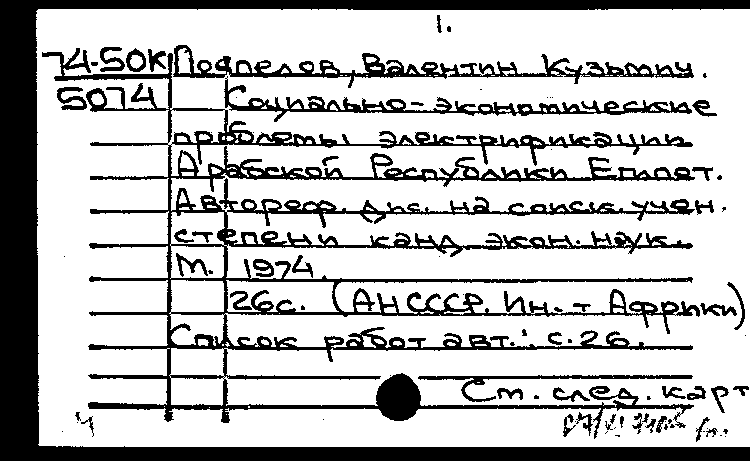 1.
74-50К Поспелов, Валентин Кузьмич.
5074 Социально-экономические
проблемы электрификации
Арабской Республики Египет.
Автореф. дис. на соиск. учен.
степени канд. экон. наук.
М. 1974.
26с. (АН СССР. Ин.-т Африки)
Список работ авт.: с.26.
См. след. карт